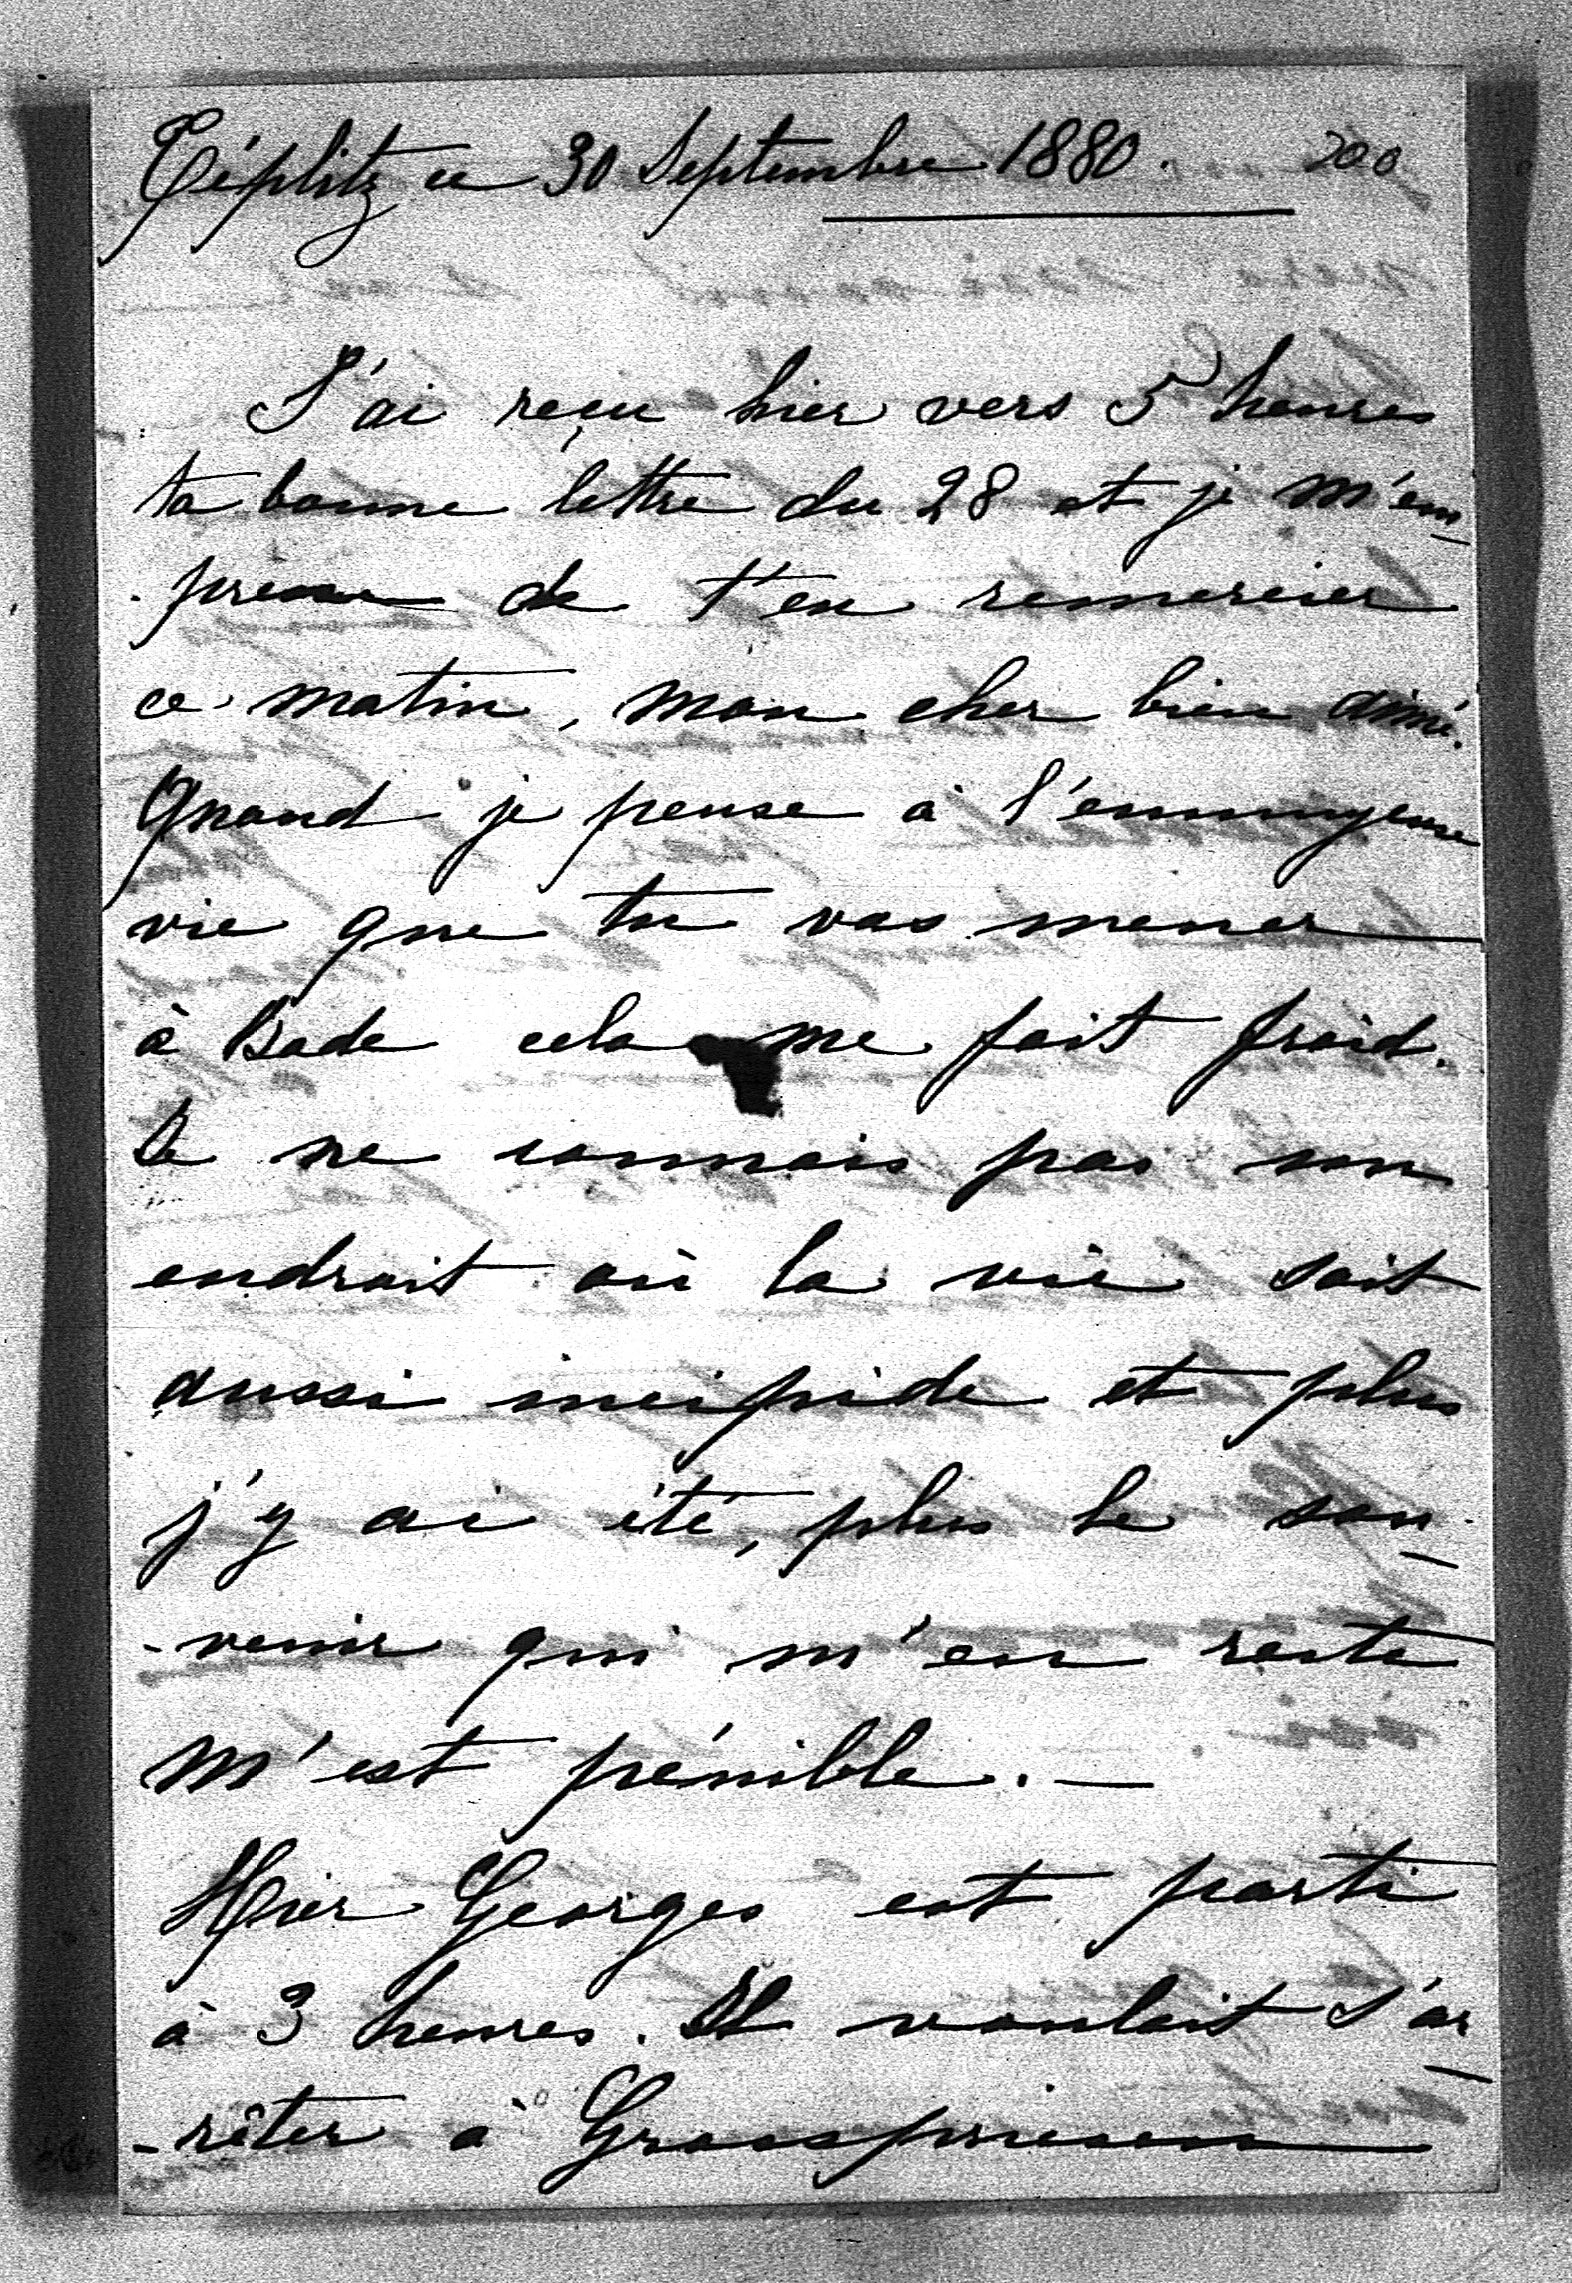 Téplitz ce 30 Septembre 1880. 200
J'ai reçu hier vers 5 heures
ta bonne lettre du 28 et je m'em-
-presse de t'en remercier
ce matin, mon cher bien aimé.
Quand je pense à l'ennuyeuse
vie que tu vas mener
à Bade cela me fait froid.
Je ne connais pas un
endroit où la vie soit
aussi incipide et plus
j'y ai été, plus le sou-
-venir qui m'en reste
m'est pénible. —
Hier Georges est parti
à 3 heures. Il voulait s'ar-
-rêter à Grosspriesen